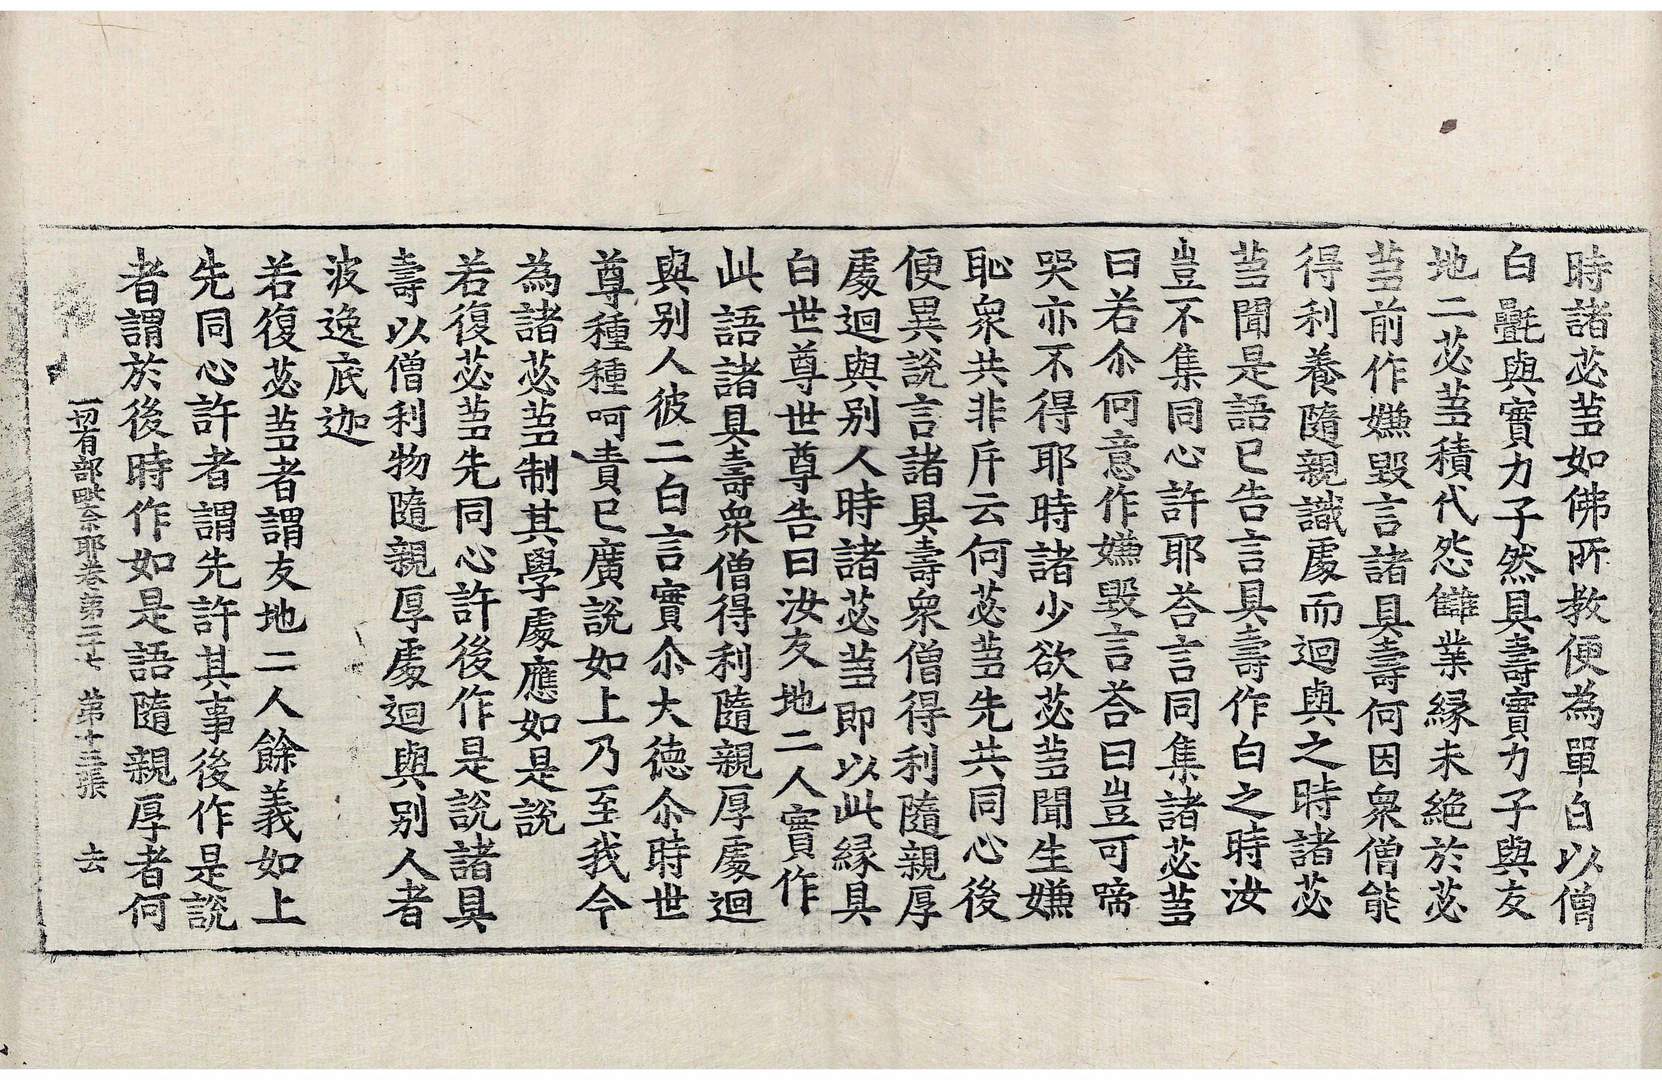 時諸苾芻如佛所教便為單白以僧
白㲲與實力子然具壽實力子與友
地二苾芻積代怨讎業縁未絶於苾
芻前作嫌毀言諸具壽何因衆僧能
得利養隨親識處而迴與之時諸苾
芻聞是語已告言具壽作白之時汝
豈不集同心許耶荅言同集諸苾芻
曰若尒何意作嫌毀言荅曰豈可啼
哭亦不得耶時諸少欲苾芻聞生嫌
恥衆共非斥云何苾芻先共同心後
便異說言諸具壽衆僧得利隨親厚
處迴與別人時諸苾芻即以此縁具
白世尊世尊告曰汝友地二人實作
此語諸具壽衆僧得利隨親厚處迴
與別人彼二白言實尒大德尒時世
尊種種呵責已廣說如上乃至我今
為諸苾芻制其學處應如是說
若復苾芻先同心許後作是說諸具
壽以僧利物隨親厚處迴與別人者
波逸底迦
若復苾芻者謂友地二人餘義如上
先同心許者謂先許其事後作是說
一切有部毗奈耶卷第三十七　第十三張　去
者謂於後時作如是語隨親厚者何